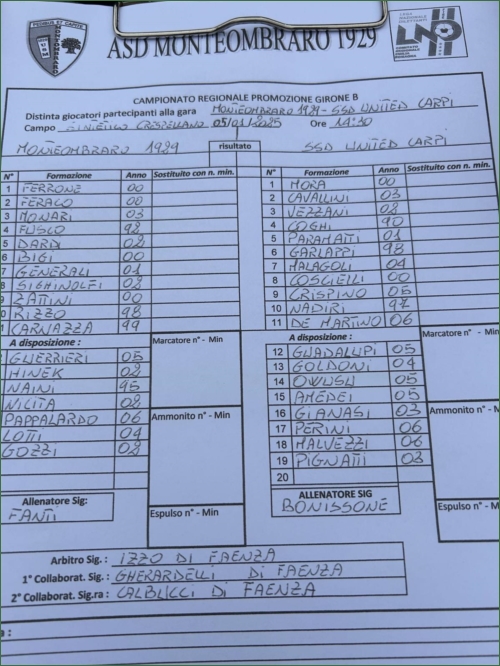 ASD MONTEOMBRARO 1929
CAMPIONATO REGIONALE PROMOZIONE GIRONE B
Distinta giocatori partecipanti alla gara MONTEOMBRARO 1929 - SSD UNITED CARPI
Campo 05/01/2025 Ore 14:30
MONTEOMBRARO 1929 risultato SSD UNITED CARPI
N° Formazione Anno Sostituito con n. min.
1 FERRONE 00
2 FERACO 00
3 MONARI 03
4 FUSCO 92
5 DARDI 02
6 BIGI 00
7 GENERALI 01
8 SIGHINOLFI 02
9 ZATTINI 00
0 RIZZO 98
1 CARNAZZA 99
A disposizione :
GUERRIERI 05
HINEK 02
NAINI 95
NICITA 02
PAPPALARDO 06
LOTTI 04
GOZZI 02
Allenatore Sig:
FANTI
Marcatore n° - Min
Ammonito n° - Min
Espulso n° - Min
N° Formazione Anno Sostituito con n. min.
1 MORA 00
2 CAVALLINI 03
3 VEZZANI 02
4 COGHI 90
5 PARAMATTI 01
6 GARLAPPI 98
7 MALAGOLI 04
8 COSCIELLI 00
9 CRISPINO 05
10 NADIRI 97
11 DE MARTINO 06
A disposizione :
12 GUADALUPI 05
13 GOLDONI 04
14 OWUSU 05
15 AMEDEI 05
16 GIANASI 03
17 PERINI 06
18 MALVEZZI 06
19 PIGNATTI 03
20
ALLENATORE SIG
BONISSONE
Marcatore n° -
Ammonito n° - Min
Espulso n° - Min
Arbitro Sig. : IZZO DI FAENZA
1° Collaborat. Sig. : GHERARDELLI DI FAENZA
2° Collaborat. Sig.ra : CALBUCCI DI FAENZA